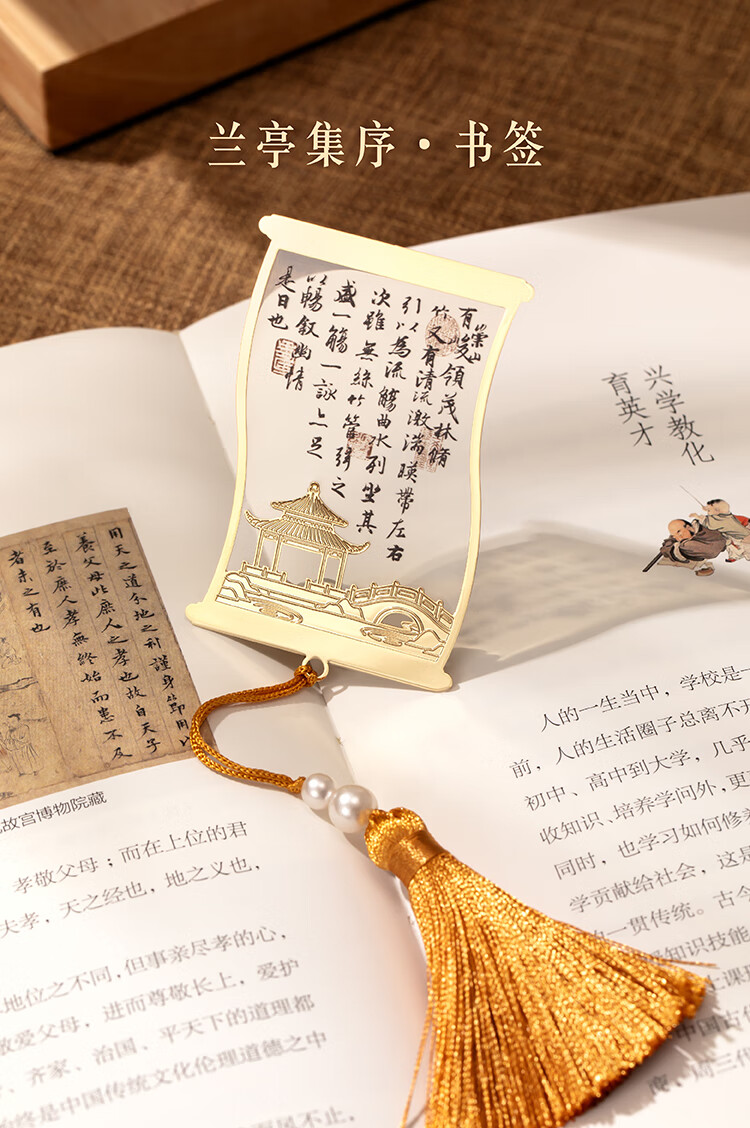 兰亭集序·书签
崇山
有峻領茂林脩
竹又有清流激湍暎帶左右
引以為流觴曲水列坐其
次雖無絲竹管弦之
盛一觴一詠亦足
以暢叙幽情
是日也
兴学教化
育英才
用天之道分地之利謹身節用
養父母此庶人之孝也故自天子
至於庶人孝無終始而患不及
者未之有也
故宫博物院藏
孝敬父母；而在上位的君
夫孝，天之经也，地之义也，
地位之不同，但事亲尽孝的心，
敬爱父母，进而尊敬长上，爱护
、齐家、治国、平天下的道理都
终是中国传统文化伦理道德之中
人的一生当中，学校是一
前，人的生活圈子总离不开
初中、高中到大学，几乎
收知识、培养学问外，更
同时，也学习如何修养
学贡献给社会，这是
的一贯传统。古今
知识技能
上课
中国古